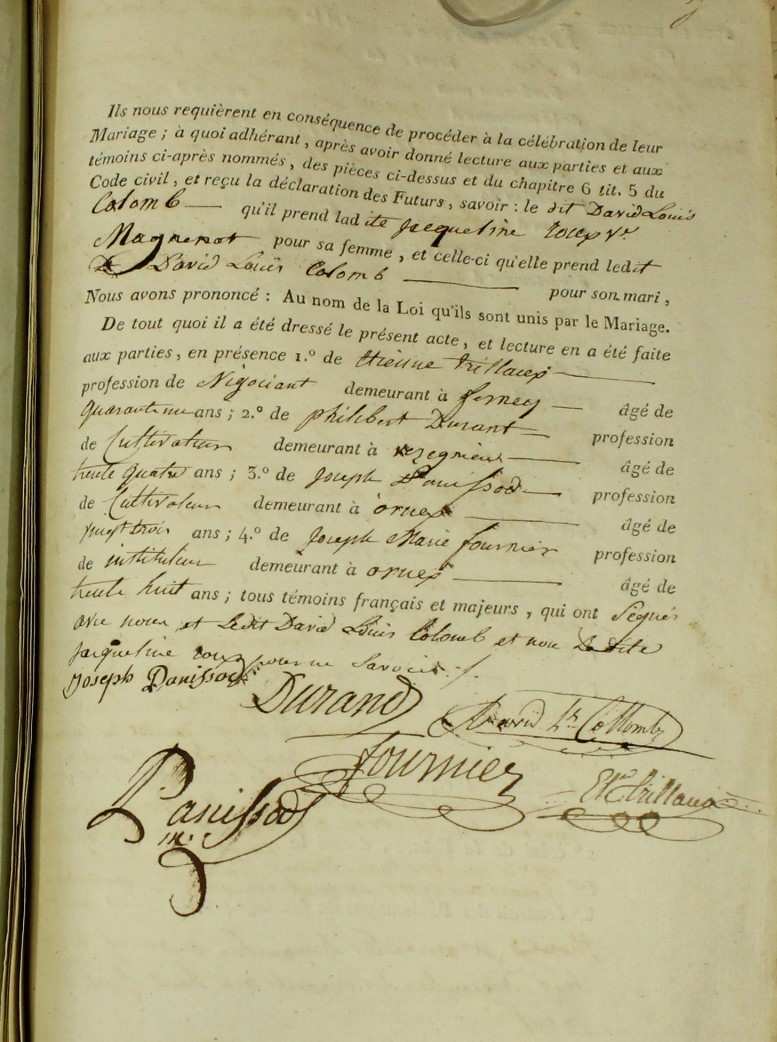 Ils nous requièrent en conséquence de procéder à la célébration de leur
Mariage ; à quoi adhérant, après avoir donné lecture aux parties et aux
témoins ci-après nommés, des pièces ci-dessus et du chapitre 6 tit. 5 du
Code civil, et reçu la déclaration des Futurs, savoir : le dit David Louis
Colomb qu'il prend lad ite jacqueline roux Ve
Magnenat pour sa femme, et celle-ci qu'elle prend ledit
David Louis Colomb pour son mari,
Nous avons prononcé : Au nom de la Loi qu'ils sont unis par le Mariage.
De tout quoi il a été dressé le présent acte, et lecture en a été faite
aux parties, en présence 1.° de Etienne
profession de Négociant demeurant à ferney âgé de
quarante un ans ; 2.° de philibert Durant profession
de Cultivateur demeurant à âgé de
trente quatre ans ; 3.° de joseph Panissod profession
de Cultivateur demeurant à ornex âgé de
vingt trois ans ; 4.° de joseph Marie fournier profession
de instituteur demeurant à ornex âgé de
trente huit ans ; tous témoins français et majeurs, qui ont Signés
avec nous et Ledit David Louis Colomb et non La dite
jacqueline roux pour ne Savoir ./.
Joseph Panissod
Durand
David Ls Collomb
fournier
Panissod
m.